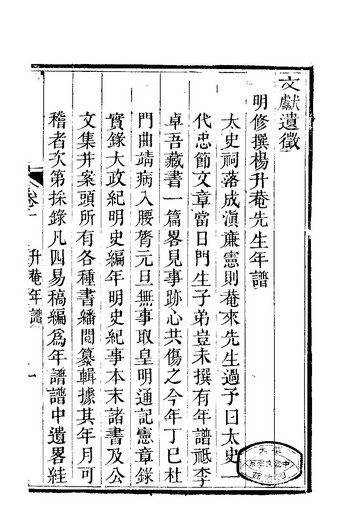 文獻遺徵
明修撰楊升菴先生年譜
太史祠落成滇廉憲則菴來先生過予曰太史一
代忠節文章當日門生子弟豈未撰有年譜祗李
卓吾藏書一篇畧見事跡心共傷之今年丁巳杜
門曲靖病入腰膂元旦無事取皇明通記憲章錄
實錄大政紀明史編年明史紀事本末諸書及公
文集幷案頭所有各種書繙閱纂輯據其年月可
稽者次第採錄凡四易稿編爲年譜譜中遺畧絓
升菴年譜